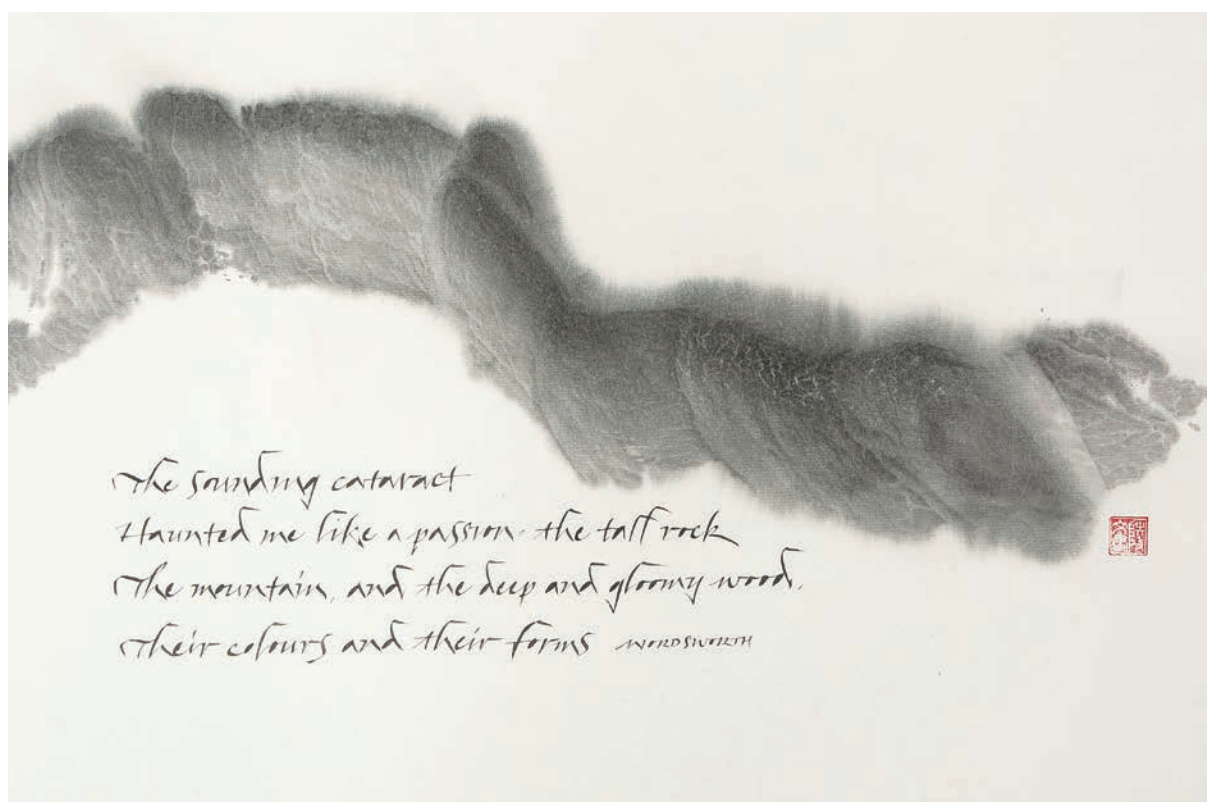 The sounding cataract
Haunted me like a passion: the tall rock
The mountain, and the deep and gloomy wood,
Their colours and their forms WORDSWORTH